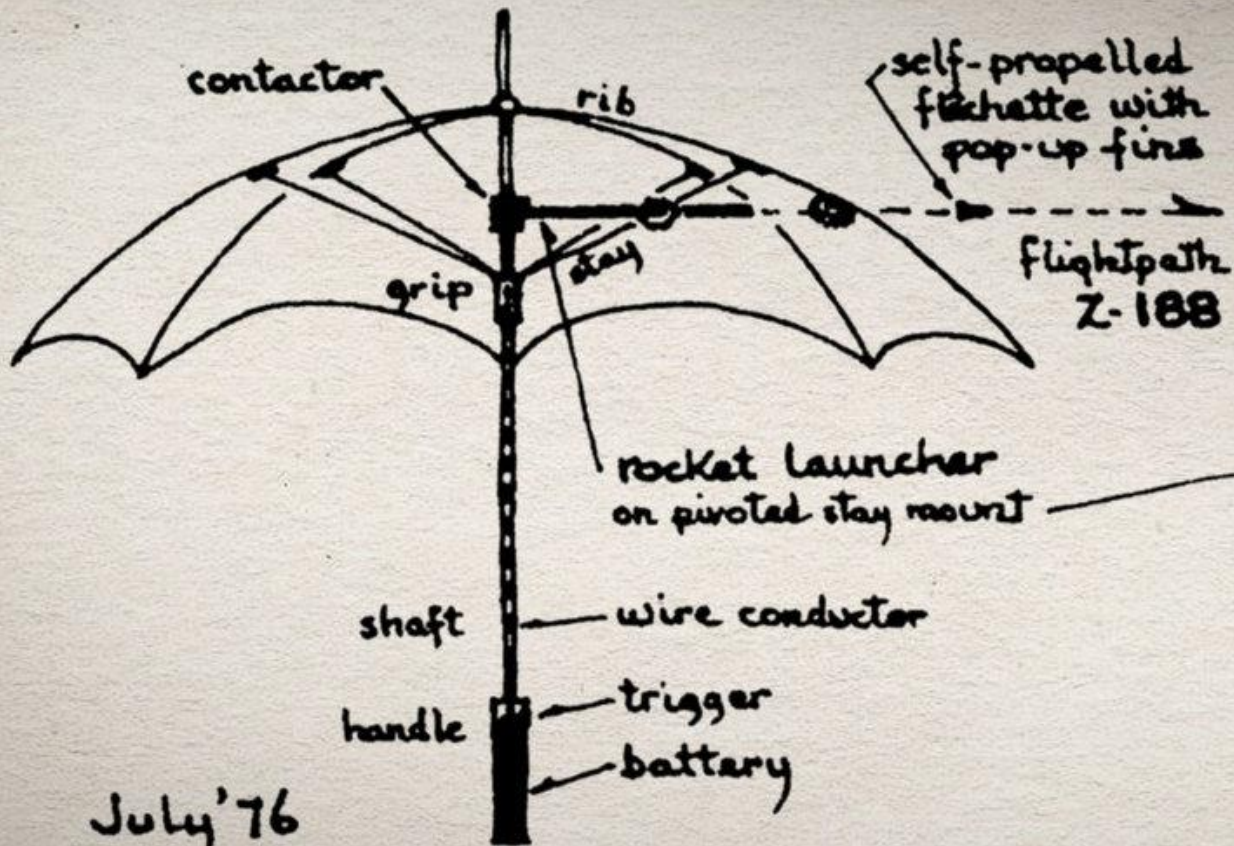 contactor
rib
self-propelled
flechette with
pop-up fins
stay
grip
flightpath
Z-188
rocket launcher
on pivoted stay mount
shaft
wire conductor
trigger
handle
battery
July '76